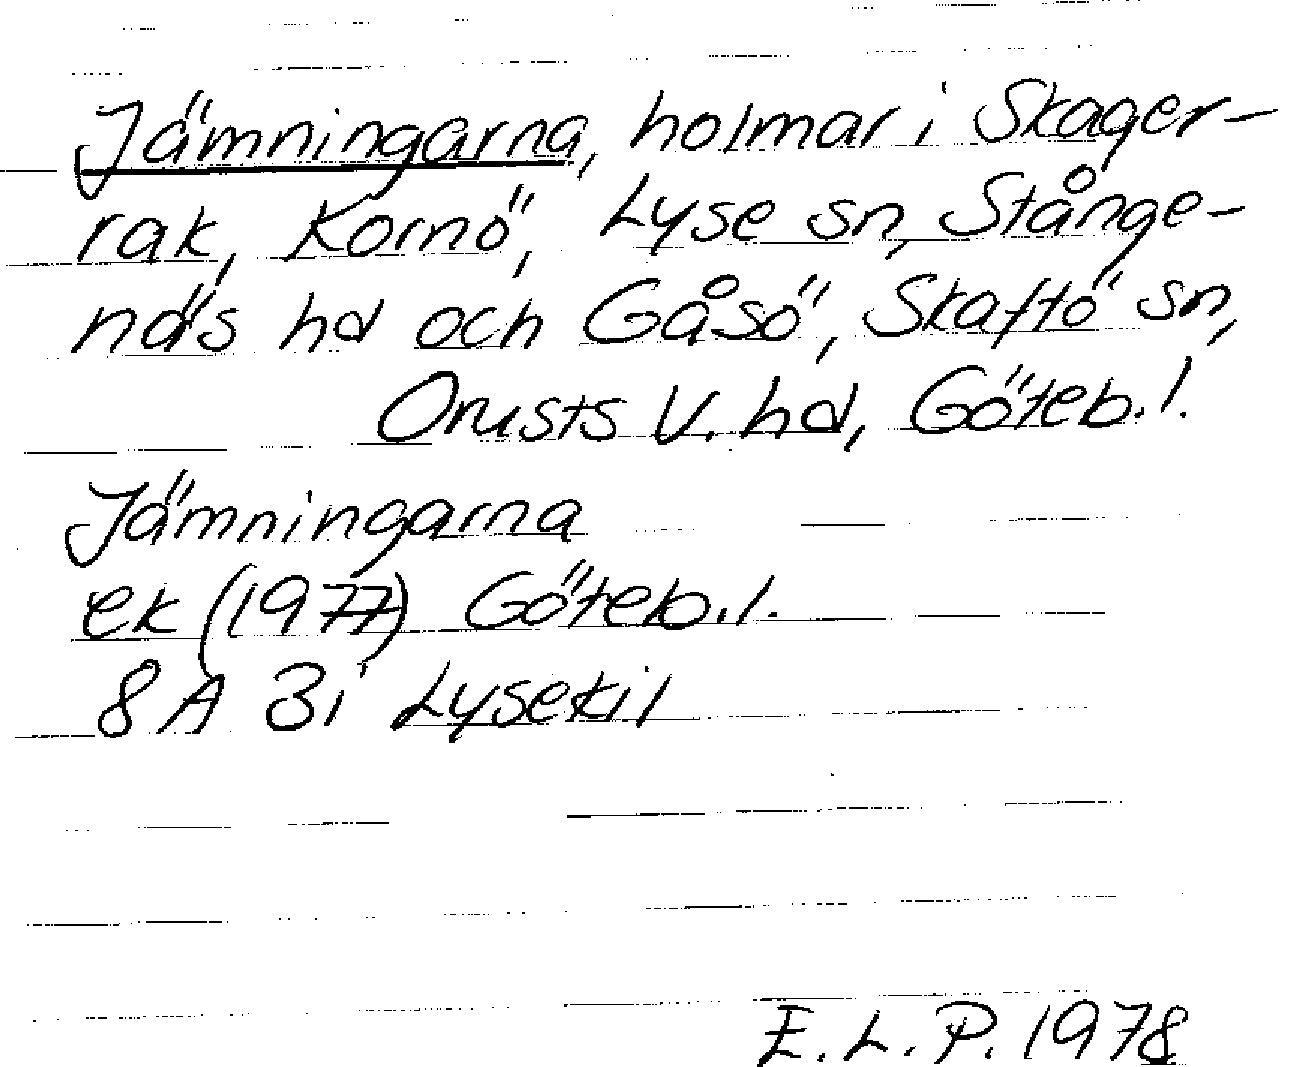 Jämningarna, holmar i Skager-
rak, Kornö, Lyse sn, Stånge-
näs hd och Gåsö, Skaftö sn,
Orusts V. hd, Göteb.l.
Jämningarna
ek (1977) Göteb.l.
8A 3i Lysekil
E.L.P. 1978